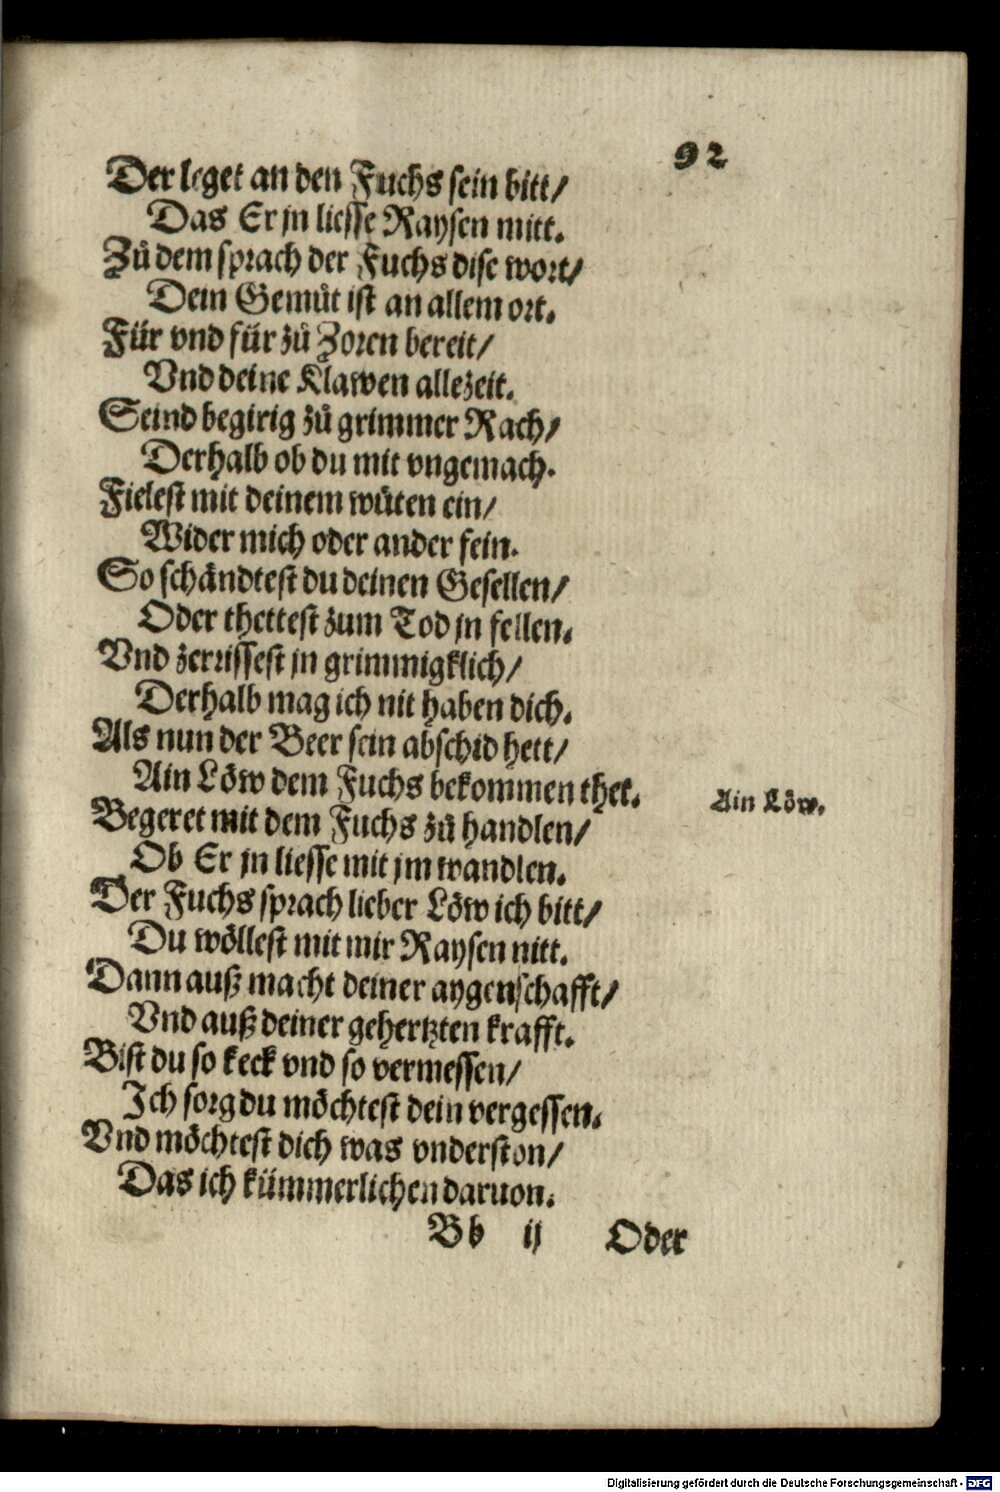 92
Der leget an den Fuchs sein bitt/
Das Er jn liesse Raysen mitt.
Zů dem sprach der Fuchs dise wort/
Dein Gemüt ist an allem ort.
Für vnd für zů Zoren bereit/
Vnd deine Klawen allezeit.
Seind begirig zů grimmer Rach/
Derhalb ob du mit vngemach.
Fielest mit deinem wüten ein/
Wider mich oder ander fein.
So schändtest du deinen Gesellen/
Oder thettest zum Tod jn fellen.
Vnd zerrissest jn grimmigklich/
Derhalb mag ich nit haben dich.
Als nun der Beer sein abschid hett/
Ain Löw dem Fuchs bekommen thet.
Ain Löw.
Begeret mit dem Fuchs zů handlen/
Ob Er jn liesse mit jm wandlen.
Der Fuchs sprach lieber Löw ich bitt/
Du wöllest mit mir Raysen nitt.
Dann auß macht deiner aygenschafft/
Vnd auß deiner gehertzten krafft.
Bist du so keck vnd so vermessen/
Ich sorg du möchtest dein vergessen.
Vnd möchtest dich was vnderston/
Das ich kümmerlichen daruon.
Bb ij Oder
Digitalisierung gefördert durch die Deutsche Forschungsgemeinschaft - DFG